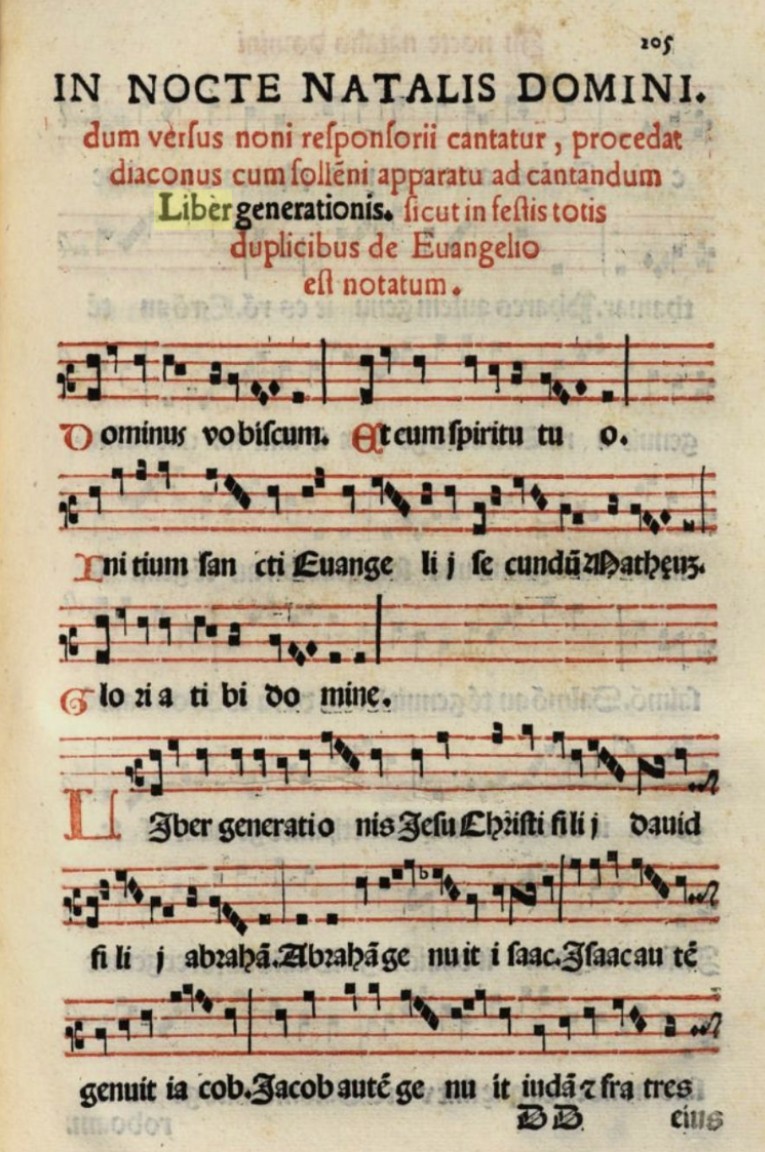 105
IN NOCTE NATALIS DOMINI.
dum versus noni reſponſorii cantatur , procedat
diaconus cum ſollẽni apparatu ad cantandum
Liber generationis. ſicut in feſtis totis
duplicibus de Euangelio
eſt notatum .
Dominus vo biſcum. Et cum ſpiritu tu o.
Ini tium ſan cti Euange li j ſe cundũ Mathęuʒ.
Glo ri a ti bi do mine.
LIber generatio nis Jeſu Chriſti fi li j dauid
fi li j abrahã. Abrahã ge nu it i ſaac. Iſaac au tẽ
genuit ia cob. Jacob autẽ ge nu it iudã ⁊ fra tres
DD eius